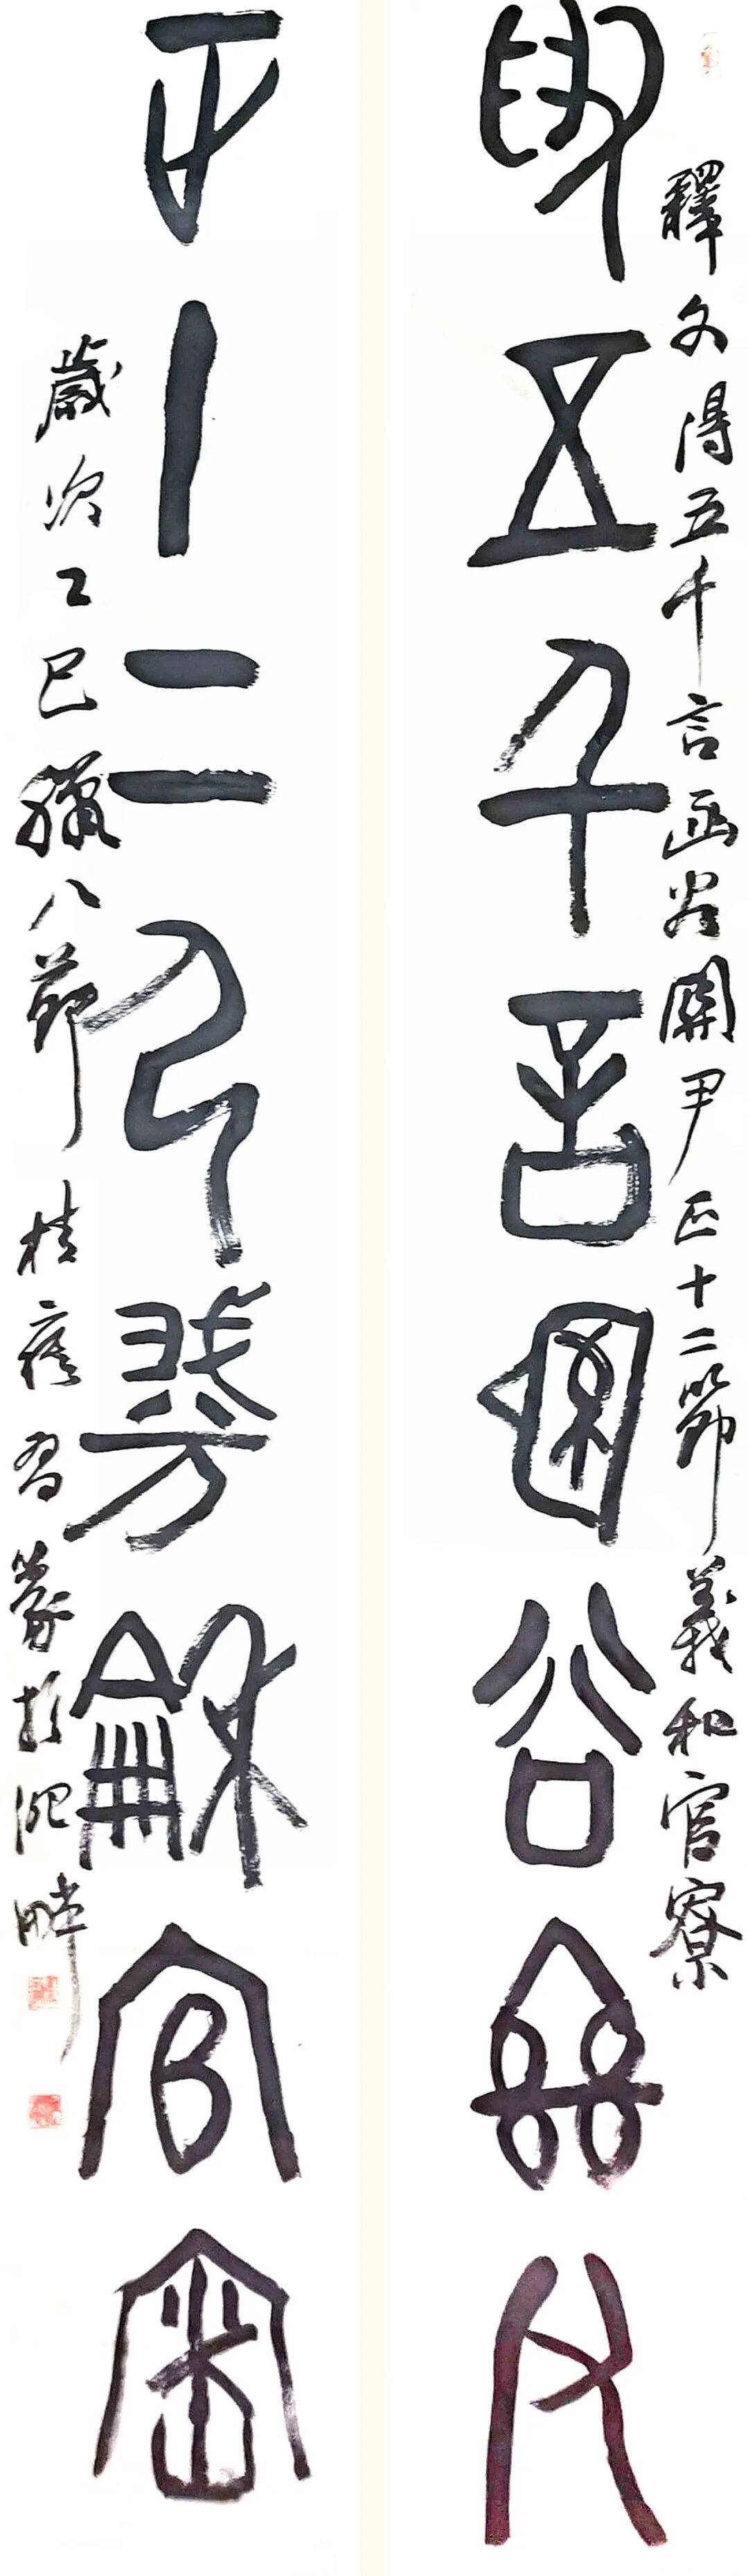 釋文得五千言函谷關尹正十二節義和官寮
得五千言函谷關尹
正十二卩義龢官寮
歲次乙巳臘八節桂習篆於淝畔